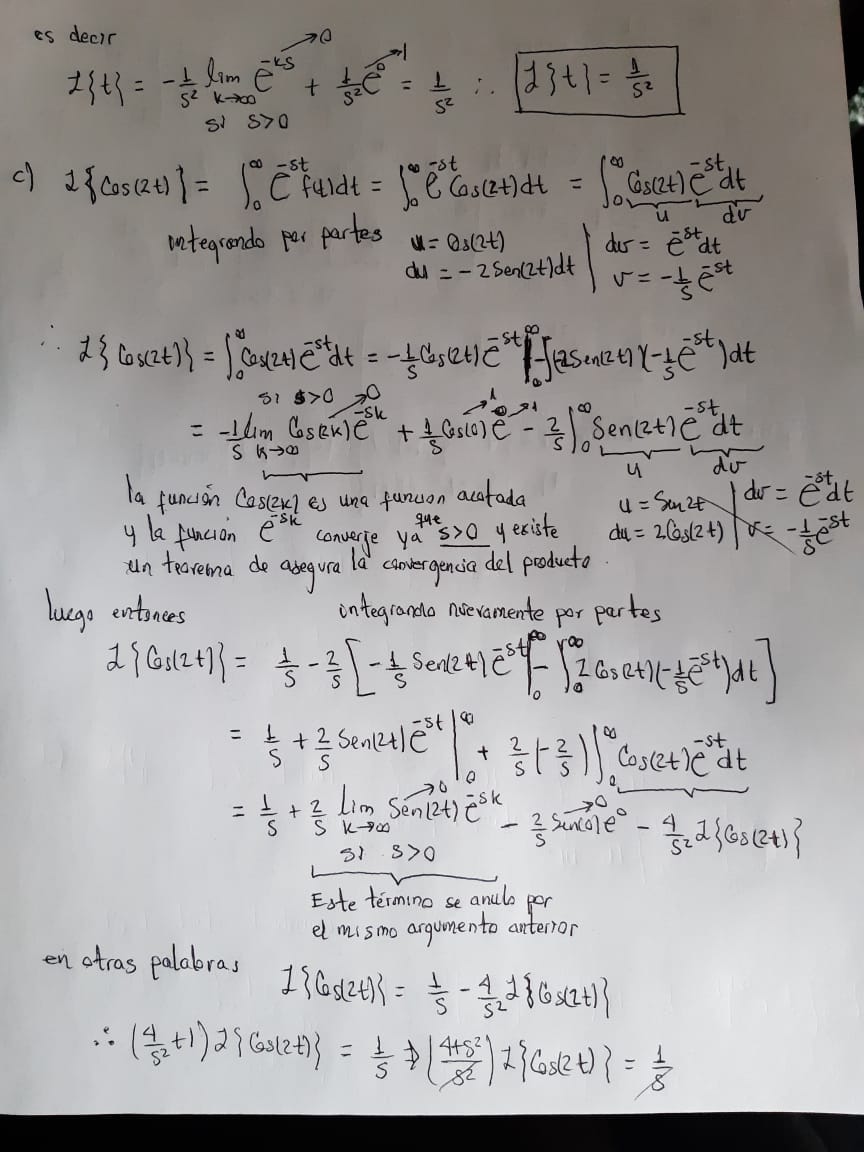 es decir
ℒ{t} = -1/s² lim k→∞ e^-ks →0 + 1/s² e^0 →1 = 1/s² ∴ ℒ{t} = 1/s²
si s>0
c) ℒ{Cos(2t)} = ∫₀^∞ e^-st f(t)dt = ∫₀^∞ e^-st Cos(2t)dt = ∫₀^∞ Cos(2t) e^-st dt
u dv
integrando por partes u = Cos(2t) | dv = e^-st dt
du = -2Sen(2t)dt | v = -1/s e^-st
∴ ℒ{Cos(2t)} = ∫₀^∞ Cos(2t) e^-st dt = -1/s Cos(2t) e^-st |₀^∞ - ∫(-2Sen(2t))(-1/s e^-st)dt
si s>0
= -1/s lim k→∞ Cos(2k) e^-sk →0 + 1/s Cos(0) →1 e^0 →1 - 2/s ∫₀^∞ Sen(2t) e^-st dt
u dv
la función Cos(2k) es una funcion acotada
y la función e^-sk converje ya que s>0 y existe
un teorema de asegura la convergencia del producto.
u = Sen2t | dv = e^-st dt
du = 2Cos(2t) | v = -1/s e^-st
luego entonces integrando nuevamente por partes
ℒ{Cos(2t)} = 1/s - 2/s [-1/s Sen(2t) e^-st |₀^∞ - ∫₀^∞ 2Cos(2t)(-1/s e^-st)dt]
= 1/s + 2/s Sen(2t) e^-st |₀^∞ + 2/s (-2/s) ∫₀^∞ Cos(2t) e^-st dt
= 1/s + 2/s lim k→∞ Sen(2t) e^-sk →0 - 2/s Sen(0) e^0 →0 - 4/s² ℒ{Cos(2t)}
si s>0
Este término se anula por
el mismo argumento anterior
en otras palabras
ℒ{Cos(2t)} = 1/s - 4/s² ℒ{Cos(2t)}
∴ (4/s² + 1) ℒ{Cos(2t)} = 1/s ⇒ ((4+s²)/s²) ℒ{Cos(2t)} = 1/s